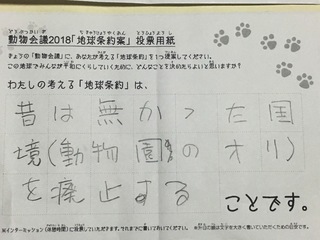 動物会議2018「地球条約案」投票用紙
きょうの「動物会議」に、あなたが考える「地球条約」を1つ提案してください。
この地球でみんなが平和にくらしていくために、どんなことを決めたらよいと思いますか?
わたしの考える「地球条約」は、
昔は無かった国
境(動物園のオリ)
を廃止する
ことです。